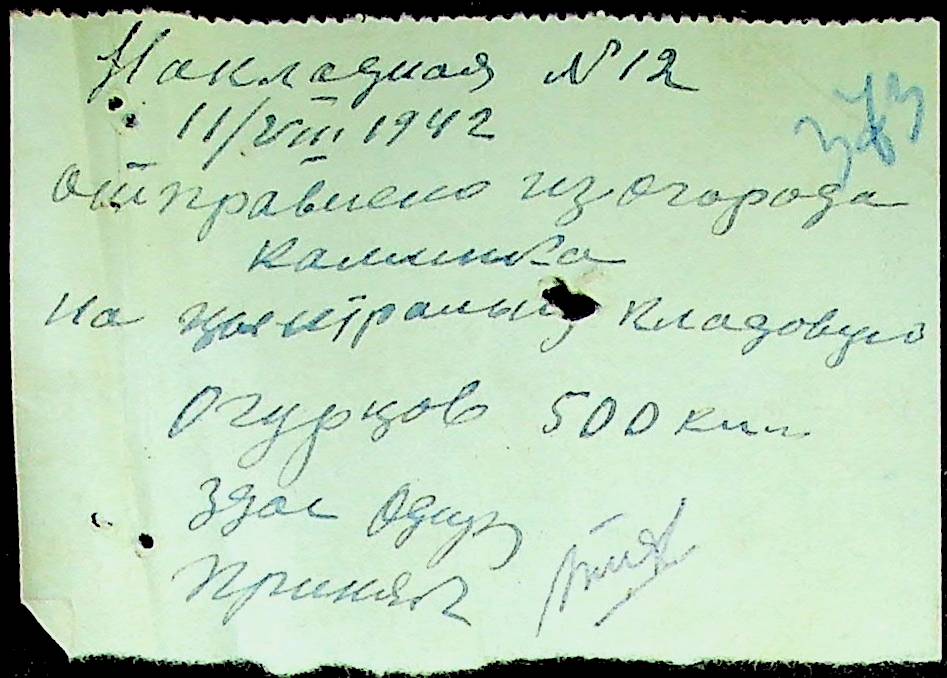 Накладная N 12
11/VIII 1942
отправлено из огорода
Калинка
на центральн кладовую
Огурцов 500 кил
Здал
Принял